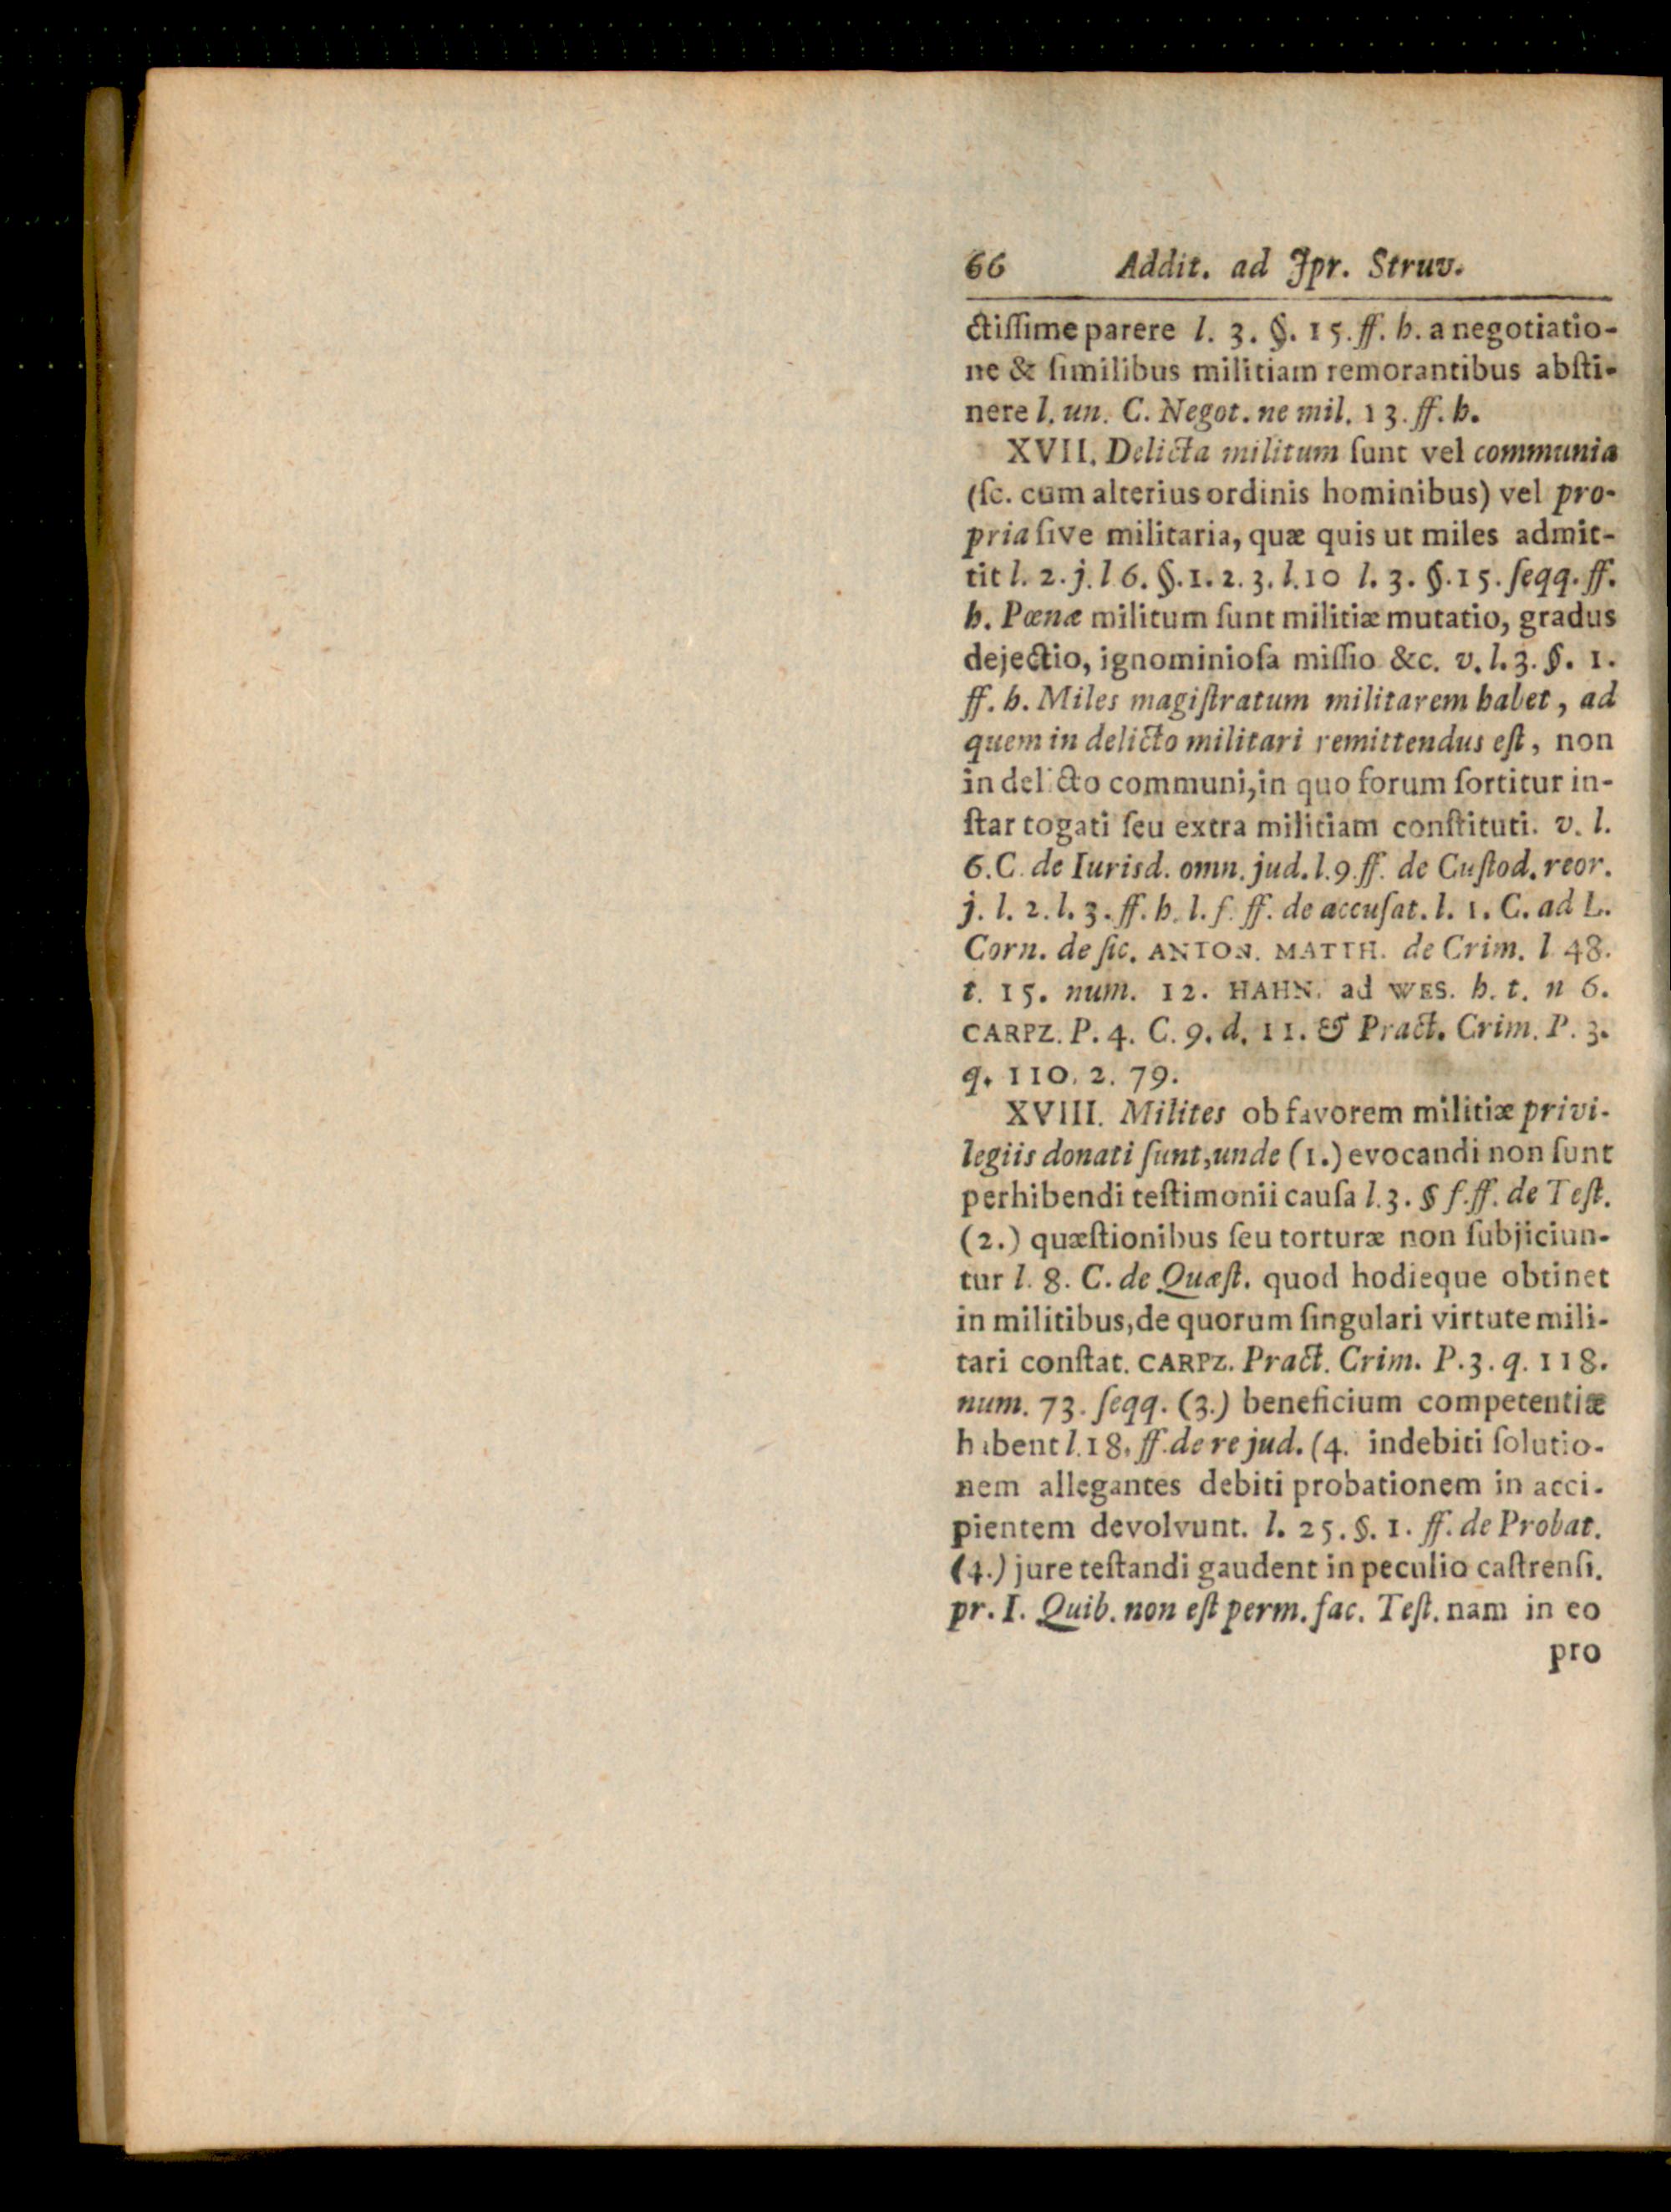 66 Addit. ad Jpr. Struv.
ctiſſime parere l. 3. §. 15. ff. h. a negotiatio-
ne & ſimilibus militiam remorantibus abſti-
nere l. un. C. Negot. ne mil. 13. ff. h.
XVII. Delicta militum ſunt vel communia
(ſc. cum alterius ordinis hominibus) vel pro-
pria ſive militaria, quæ quis ut miles admit-
tit l. 2. j. l 6. §. 1. 2. 3. l. 10 l. 3. §. 15. ſeqq. ff.
h. Pœnæ militum ſunt militiæ mutatio, gradus
dejectio, ignominioſa miſſio &c. v. l. 3. §. 1.
ff. h. Miles magiſtratum militarem habet, ad
quem in delicto militari remittendus eſt, non
in delicto communi, in quo forum ſortitur in-
ſtar togati ſeu extra militiam conſtituti. v. l.
6. C. de Iurisd. omn. jud. l. 9. ff. de Cuſtod. reor.
j. l. 2. l. 3. ff. h. l. f. ff. de accuſat. l. 1. C. ad L.
Corn. de ſic. ANTON. MATTH. de Crim. l 48.
t. 15. num. 12. HAHN. ad WES. h. t. n 6.
CARPZ. P. 4. C. 9. d. 11. & Pract. Crim. P. 3.
q. 110. 2. 79.
XVIII. Milites ob favorem militiæ privi-
legiis donati ſunt, unde (1.) evocandi non ſunt
perhibendi teſtimonii cauſa l. 3. § f. ff. de Teſt.
(2.) quæſtionibus ſeu torturæ non ſubjiciun-
tur l. 8. C. de Quæſt. quod hodieque obtinet
in militibus, de quorum ſingulari virtute mili-
tari conſtat. CARPZ. Pract. Crim. P. 3. q. 118.
num. 73. ſeqq. (3.) beneficium competentiæ
habent l. 18. ff. de re jud. (4. indebiti ſolutio-
nem allegantes debiti probationem in acci-
pientem devolvunt. l. 25. §. 1. ff. de Probat.
(4.) jure teſtandi gaudent in peculio caſtrenſi.
pr. I. Quib. non eſt perm. fac. Teſt. nam in eo
pro